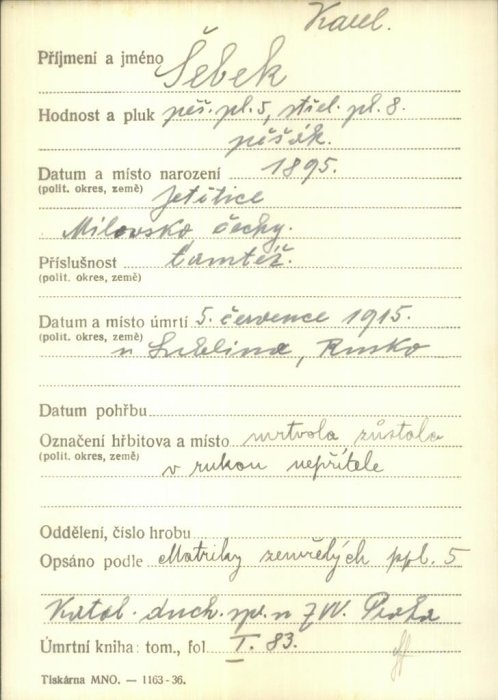 Karel.
Příjmení a jméno Šebek
Hodnost a pluk pěš. pl. 5, střel. pl. 8.
pěšák.
Datum a místo narození 1895.
(polit. okres, země) Jetětice
Milevsko Čechy.
Příslušnost tamtéž.
(polit. okres, země)
Datum a místo úmrtí 5. července 1915.
(polit. okres, země) u Lublina, Rusko
Datum pohřbu
Označení hřbitova a místo mrtvola zůstala
(polit. okres, země) v rukou nepřítele
Oddělení, číslo hrobu
Opsáno podle Matriky zemřelých ppl. 5
Katol. duch. spr. u ZVV. Praha
Úmrtní kniha: tom., fol I. 83.
Tiskárna MNO. — 1163-36.